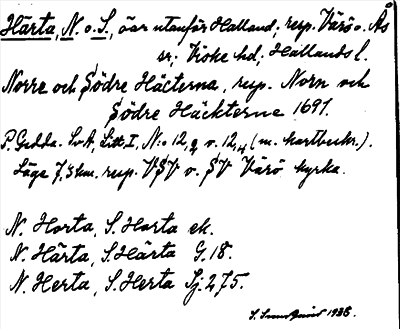 Härta, N. o. S., öar utanför Halland; resp. Värö o. Ås
sr; Viske hd; Hallands l.
Norre och Södre Häcterna, resp. Norn och
Södre Häckterne 1691.
P. Gedda. SvA, Litt I, N:o 12, o. 12, (m. kartbeskr.).
Läge 7,5 km. resp. VSV o. SV Värö kyrka.
N. Horta, S. Horta ek.
N. Härta, S. Härta G. 18.
N. Herta, S. Herta Sj. 275.
S. 1935.